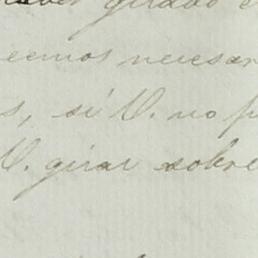 girado
eemos necesar
s, si V. no p
V. girar sobre